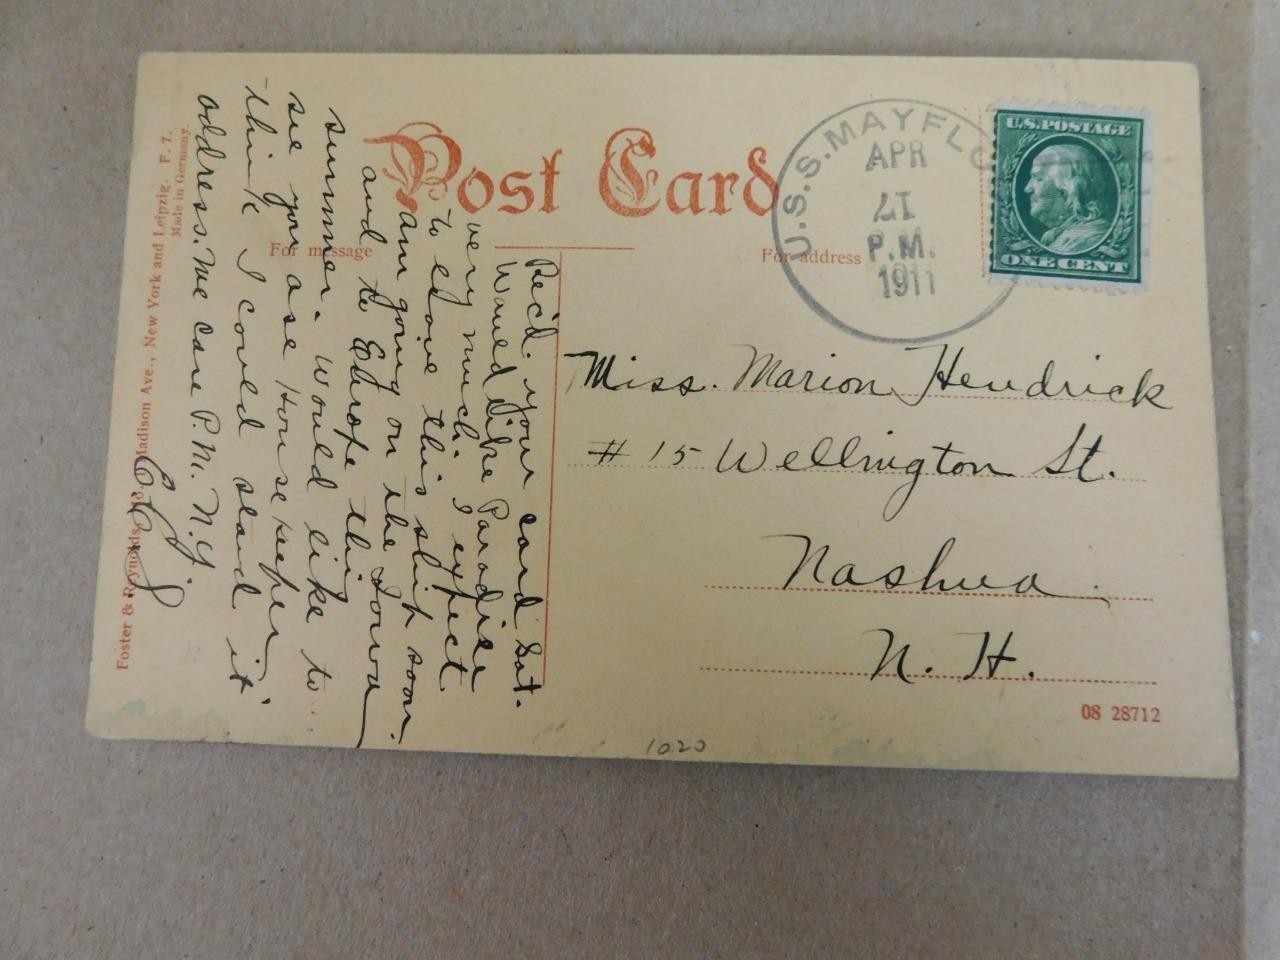 Post Card
For message
For address
U.S.S. MAYFLO
APR
P.M.
1911
U.S. POSTAGE
ONE CENT
Miss. Marion Hendrick
# 15 Wellington St.
Nashua.
N. H.
08 28712
1020
Rec'd. your card Sat.
Would like Paradise
very much. I expect
to leave this ship soon.
am going on the Iowa
and to Europe this
summer. Would like to
see you as a Housekeeper
think I could stand it
address. me care P.M. N.Y.
Foster & Reynolds Co. Madison Ave., New York and Leipzig. F. 7.
Made in Germany.